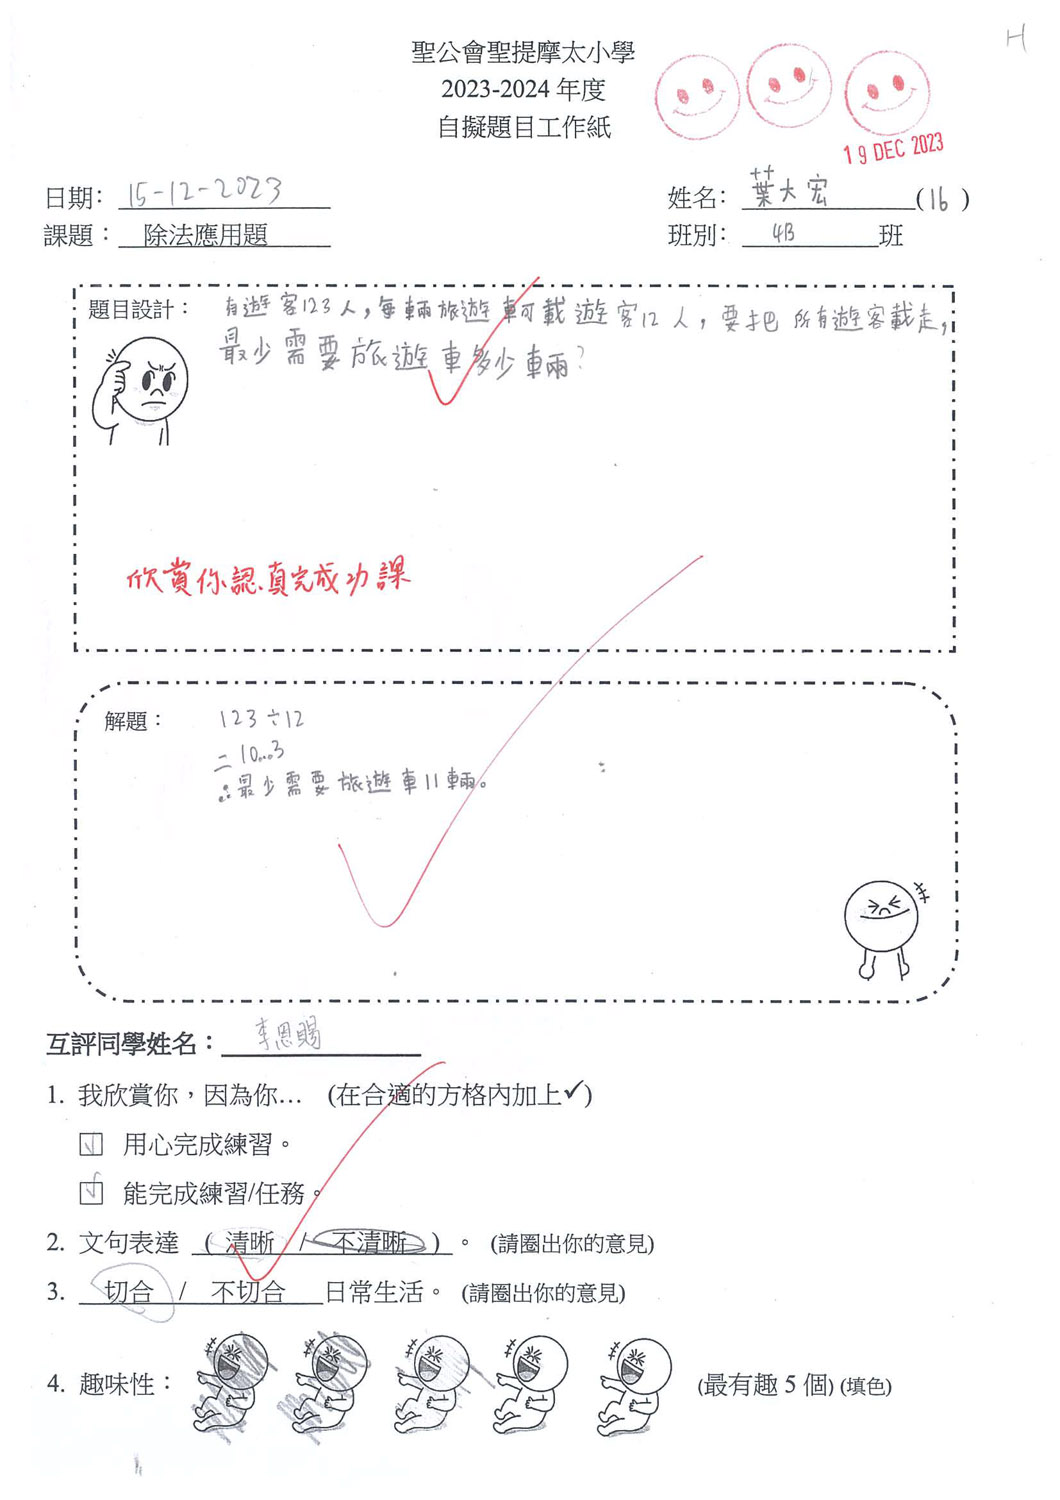 H
聖公會聖提摩太小學
2023-2024 年度
自擬題目工作紙
19 DEC 2023
日期： 15-12-2023 姓名： 葉大宏 (16)
課題： 除法應用題 班別： 4B 班
題目設計： 有遊客123人，每輛旅遊車可載遊客12人，要把所有遊客載走，
最少需要旅遊車多少輛？
欣賞你認真完成功課
解題： 123÷12
=10...3
∴最少需要旅遊車11輛。
互評同學姓名： 李恩賜
1. 我欣賞你，因為你… (在合適的方格內加上✓)
☑ 用心完成練習。
☑ 能完成練習/任務。
2. 文句表達 ( 清晰 / 不清晰 ) 。 (請圈出你的意見)
3. 切合 / 不切合 日常生活。 (請圈出你的意見)
4. 趣味性： (最有趣 5 個) (填色)